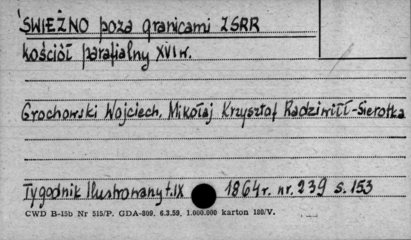 ŚWIEŹNO poza granicami ZSRR
kościół parafialny XVI w.
Grochowski Wojciech, Mikołaj Krzysztof Radziwiłł-Sierotka
Tygodnik Ilustrowany t. IX 1864 r. nr. 239 s. 153
CWD B-15b Nr 515/P. GDA-809. 6.3.59. 1.000.000 karton 180/V.